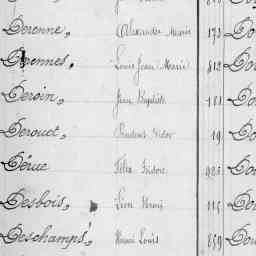 Derenne, Alexandre Marie 173 Do
Derennes, Louis Jean Marie 812 Do
Deroin, Jean Baptiste 181 Do
Derouet, Prudent Isidor 19 Do
Dérue Félix Isidore 925 Do
Desbois, Léon Henri 115 Do
Deschamps, Henri Louis 859 Dou